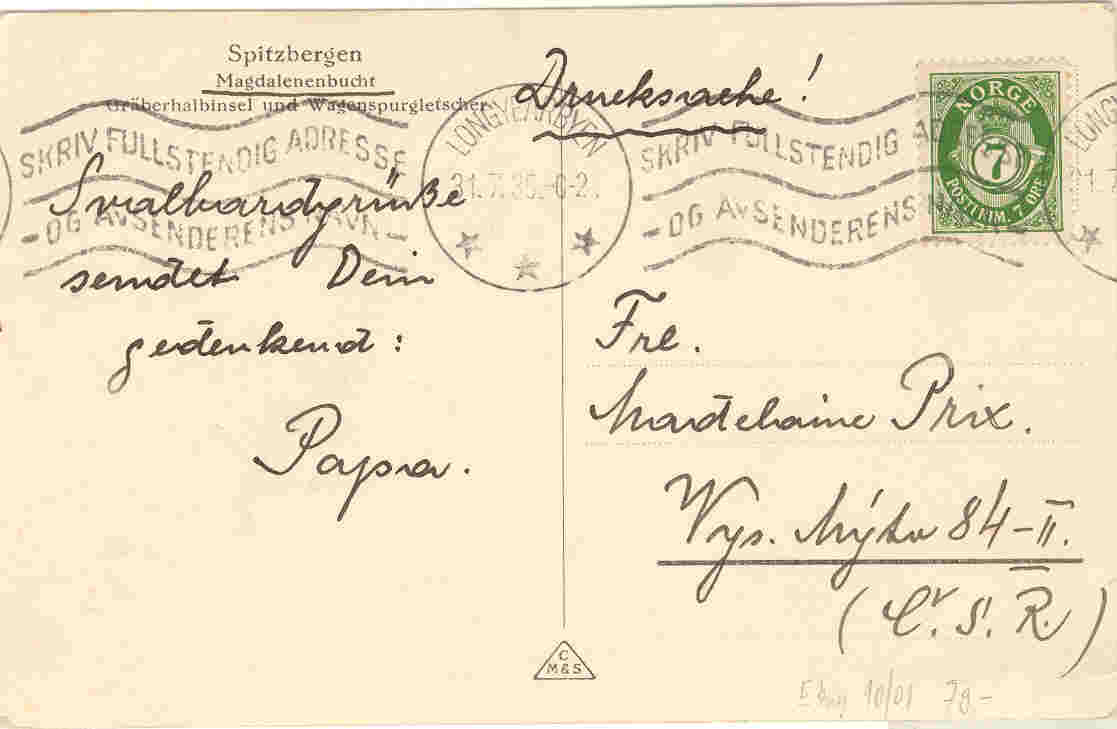 Spitzbergen
Magdalenenbucht
Gräberhalbinsel und Wagenspurgletscher
Drucksache!
SKRIV FULLSTENDIG ADRESSE
– OG AVSENDERENS NAVN –
LONGYEARBYEN
21.7.36.-0-2
SKRIV FULLSTENDIG ADRESSE
– OG AVSENDERENS
NORGE
7
POSTFRIM. 7 ØRE
LONG
21.7
Svalbardgrüße
sendet Dein
gedenkend:
Papa.
Frl.
Madelaine Prix.
Wys. Mýto 84-II.
(Č. S. R.)
C
M&S
10/01 78-